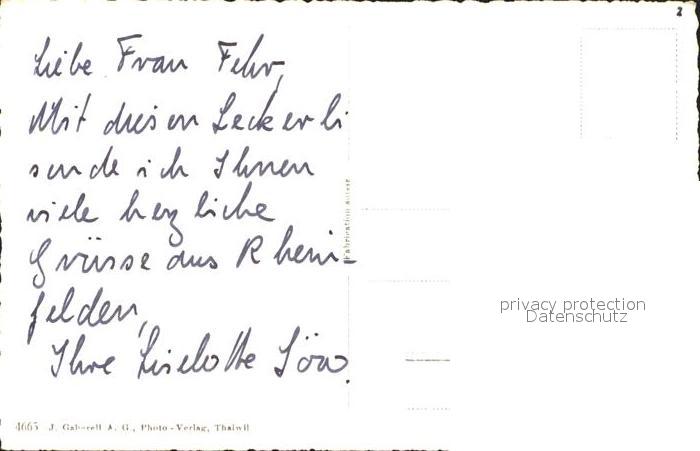 Liebe Frau Fehr,
Mit diesen Leckerli
sende ich Ihnen
viele herzliche
Grüsse aus Rhein-
felden,
Ihre Liselotte
4665 J. Gaberell A. G., Photo-Verlag, Thalwil
Fabrication suisse
privacy protection
Datenschutz
2